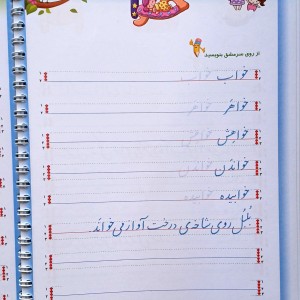 از روی سرمشق بنویسید
خواب خواب
خواهر خواهر
خواهش
خواندن خواندن
خوابیده خوابیده
بُلبُل روی شاخه‌ی درخت آواز می‌خوانَد